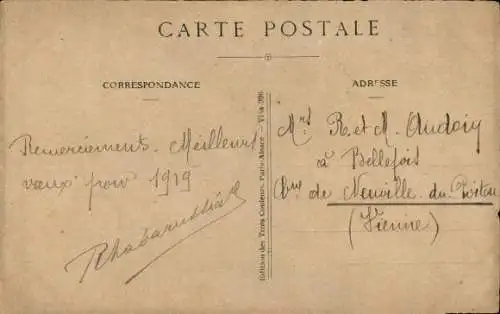 CARTE POSTALE
CORRESPONDANCE
Remerciements. Meilleurs
vœux pour 1919
ADRESSE
Mrs R. et M. Audoin
à Bellefois
Cne de Neuville du Poitou
(Vienne)
Edition des Trois Couleurs, Paris-Alsace - Visa